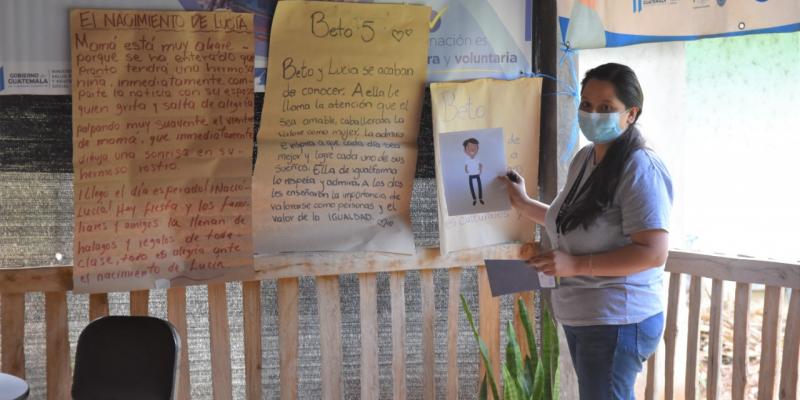 El NACIMIENTO DE LUCÍA
Mamá está muy alegre
porque se ha enterado que
pronto tendrá una hermosa
niña, inmediatamente com-
parte la noticia con su esposo
quien grita y salta de alegría
palpando muy suavente el vientre
de mamá, que inmediatamente
dibuja una sonrisa en su
hermoso rostro.
¡Llego el día esperado! ¡Nacio
Lucía! Hay fiesta y los fami-
liares y amigos la llenan de
halagos y regalos de toda
clase, todo es alegría ante
el nacimiento de Lucía.
Beto 5
Beto y Lucia se acaban
de conocer. A ella le
llama la atención que el
sea amable, caballeroso, la
valore como mujer. La admira
e impera a que cada día sea
mejor y logre cada uno de sus
sueños. Ella de igual forma
lo respeta y admira. A los dos
les enseñarón la importancia de
valorarse como personas y el
valor de la IGUALDAD.
nación es
ra y voluntaria
Beto
de
GOBIERNO de
GUATEMALA
GUATEMALA